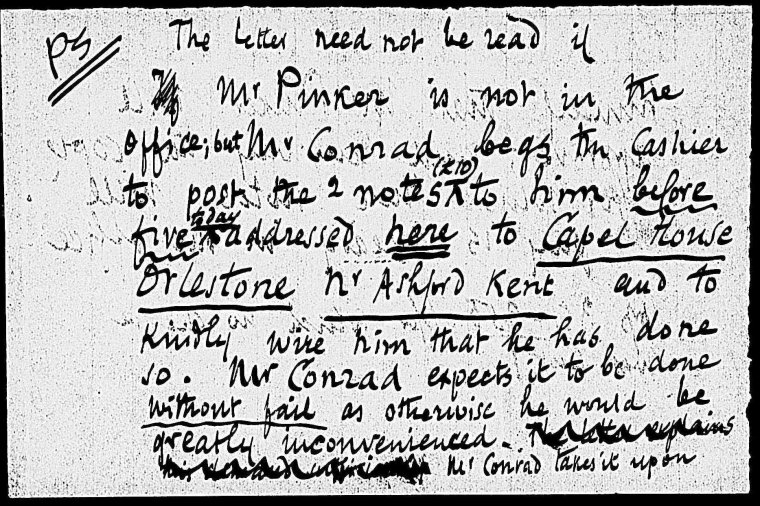 PS
The letter need not be read if
Mr Pinker is not in the
office; but Mr Conrad begs the Cashier
(£10)
to post the 2 notes ^ to him before
to day
five ^ addressed here to Capel House
Orlestone nr Ashford Kent and to
kindly wire him that he has done
so. Mr Conrad expects it to be done
without fail as otherwise he would be
greatly inconvenienced. The letter explains
Mr Conrad takes it upon